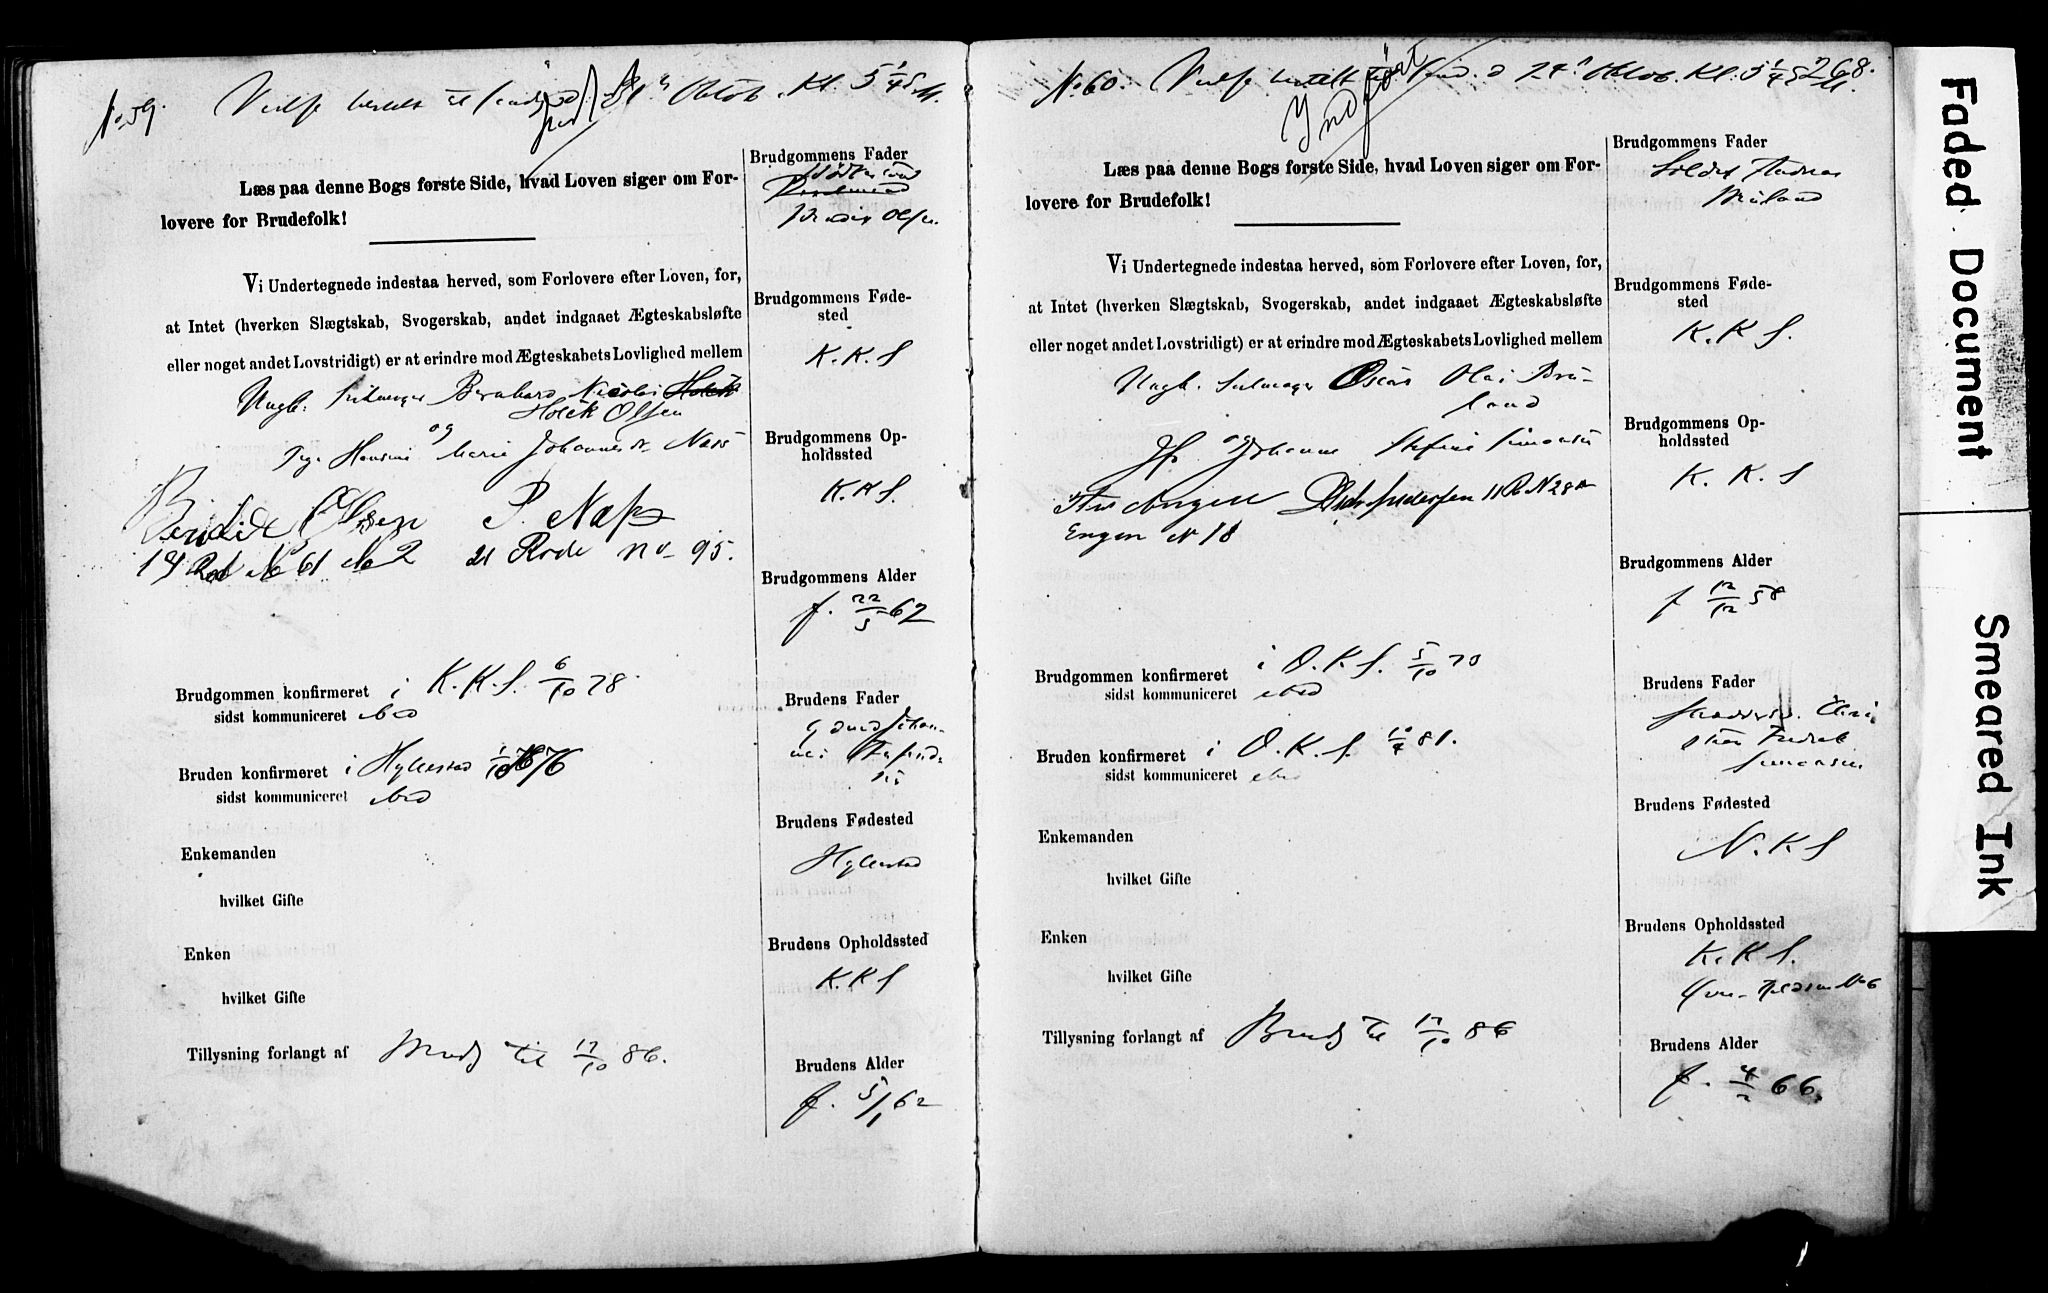 No 59. Vielse betalt til Kl. 5 1/4
Læs paa denne Bogs første Side, hvad Loven siger om For-
lovere for Brudefolk!
Vi Undertegnede indestaa herved, som Forlovere efter Loven, for,
at Intet (hverken Slægtskab, Svogerskab, andet indgaaet Ægteskabsløfte
eller noget andet Lovstridigt) er at erindre mod Ægteskabets Lovlighed mellem
Ungk. Bernhard Nicolai Holck
Holck Olsen
og
Pige Hansine Marie Johannesd. Næss
Bendix Olsen P. Næss
19 Rod No 61 No 2 21 Rode No 95.
Brudgommen konfirmeret i K.K.S. 6/10 78.
sidst kommuniceret ibid
Bruden konfirmeret i Hyllestad 1/10 76
sidst kommuniceret ibid
Enkemanden
hvilket Gifte
Enken
hvilket Gifte
Tillysning forlangt af Brudg til 17/10 86.
Brudgommens Fader
Bendix Olsen
Brudgommens Føde-
sted
K.K.S
Brudgommens Op-
holdssted
K.K.S.
Brudgommens Alder
f. 22/5 62
Brudens Fader
Brudens Fødested
Hyllestad
Brudens Opholdssted
K.K.S
Brudens Alder
f. 5/1 62
No 60. Vielse betalt 24 Oktob. Kl. 5 1/4 268.
Indført
Læs paa denne Bogs første Side, hvad Loven siger om For-
lovere for Brudefolk!
Vi Undertegnede indestaa herved, som Forlovere efter Loven, for,
at Intet (hverken Slægtskab, Svogerskab, andet indgaaet Ægteskabsløfte
eller noget andet Lovstridigt) er at erindre mod Ægteskabets Lovlighed mellem
Ungk. Oscar Olai Brü-
land
og
Jfr Johanne Stefine Simonsen
Pedersen 11 R N 28
Engen N 18
Brudgommen konfirmeret i D.K.S. 5/10 73
sidst kommuniceret ibid
Bruden konfirmeret i D.K.S. 10/4 81.
sidst kommuniceret ibid
Enkemanden
hvilket Gifte
Enken
hvilket Gifte
Tillysning forlangt af Brudg til 17/10 86
Brudgommens Fader
Soldat Andreas
Brüland
Brudgommens Føde-
sted
K.K.S.
Brudgommens Op-
holdssted
K.K.S
Brudgommens Alder
f 12/12 58
Brudens Fader
Skredders. Chri
stian Fredrik
Simonsen
Brudens Fødested
N.K.S
Brudens Opholdssted
K.K.S.
No 6
Brudens Alder
f. 4/2 66.
Faded Document
Smeared Ink